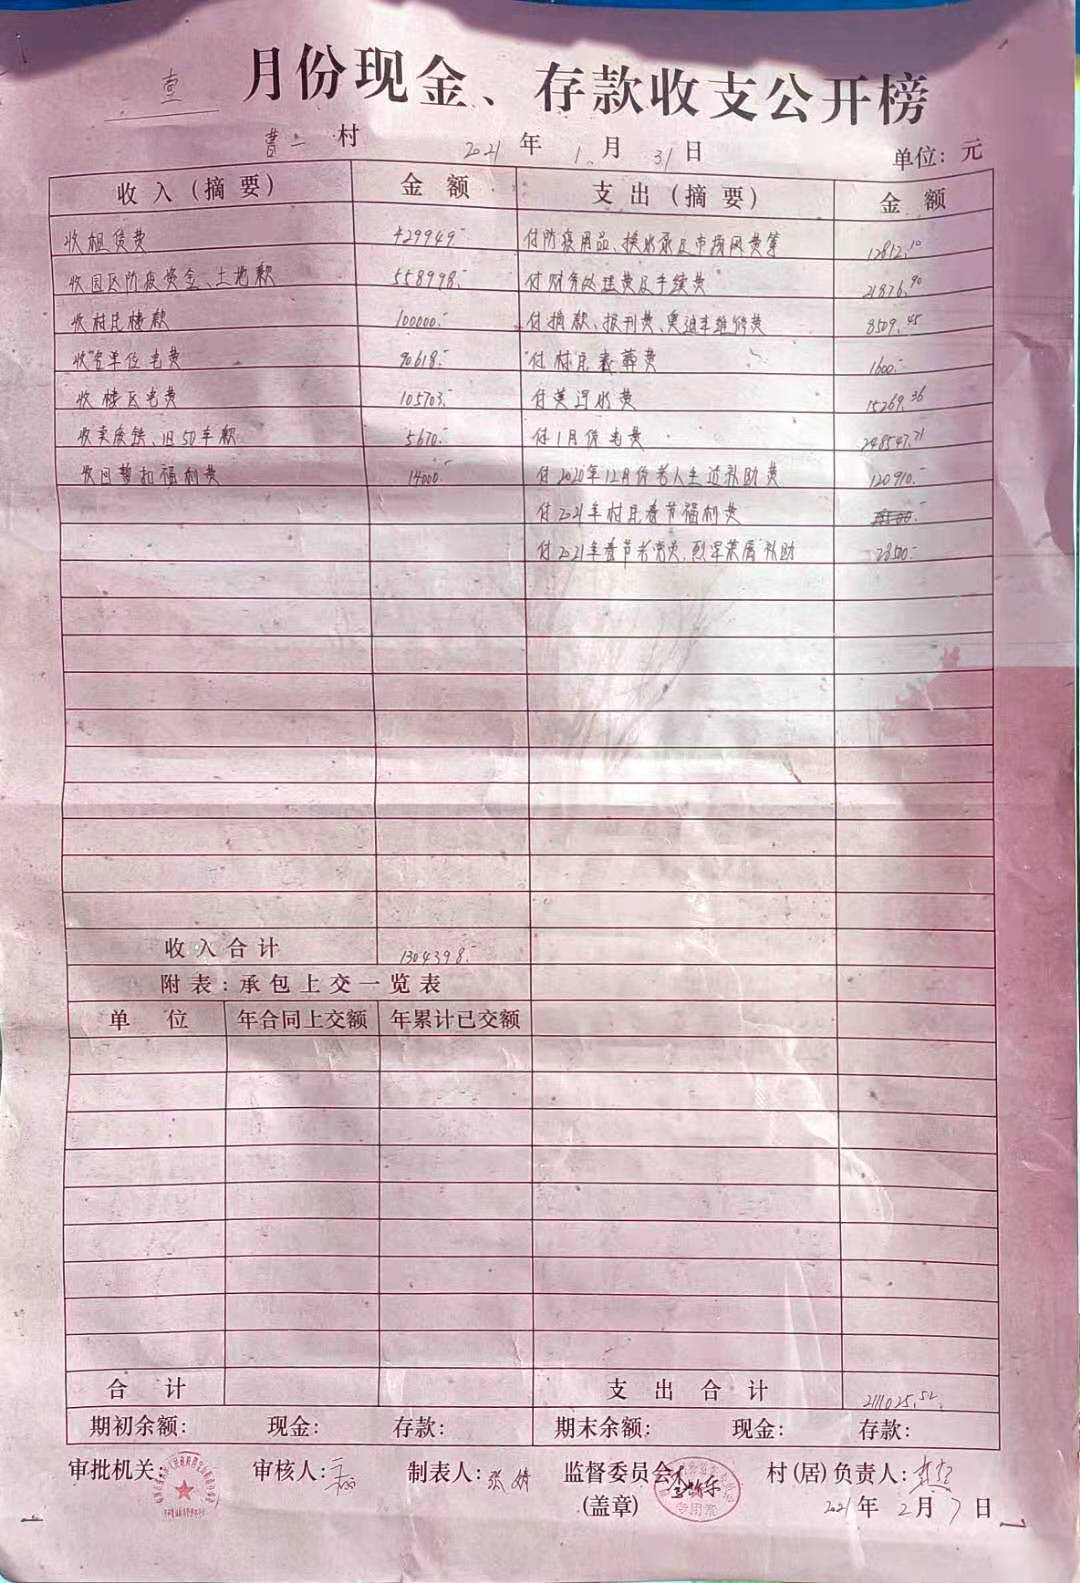 壹 月份现金、存款收支公开榜
村 2021 年 1 月 31 日 单位: 元
收入(摘要) 金额 支出(摘要) 金额
收租赁费 429949.- 付防疫用品、换水泵及市场网费等 12812.10
收园区防疫资金、土地款 558998.- 付财务处理费及手续费 21876.90
收村民楼款 100000.- 付捐款、报刊费、奥迪车维修费 8509.45
收各单位电费 90618.- 付村民丧葬费 1600.-
收楼区电费 105703.- 付黄河水费 15269.36
收卖废铁、旧50车款 5670.- 付1月份电费 248547.71
收回暂扣福利费 14000.- 付2020年12月份老人生活补助费 120910.-
付2021年村民春节福利费
付2021年春节老党员、烈军荣属补助 2850.-
收入合计 1304398.-
附表:承包上交一览表
单位 年合同上交额 年累计已交额
合计 支出合计 2111025.52
期初余额: 现金: 存款: 期末余额: 现金: 存款:
审批机关: 审核人: 制表人: 张 监督委员会 村(居)负责人:
(盖章) 专用章 2021 年 2 月 7 日